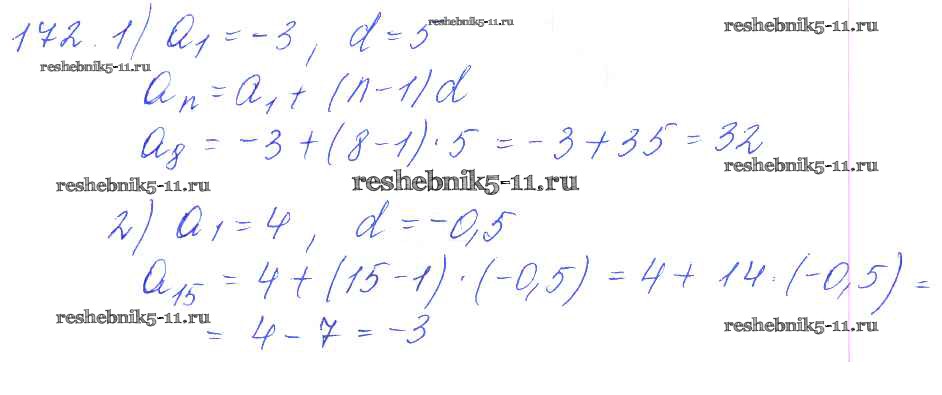 reshebnik5-11.ru
172. 1) a₁ = -3, d = 5
reshebnik5-11.ru
reshebnik5-11.ru
aₙ = a₁ + (n-1)d
a₈ = -3 + (8-1)·5 = -3 + 35 = 32
reshebnik5-11.ru
reshebnik5-11.ru
reshebnik5-11.ru
2) a₁ = 4, d = -0,5
a₁₅ = 4 + (15-1)·(-0,5) = 4 + 14·(-0,5) =
reshebnik5-11.ru
= 4 - 7 = -3
reshebnik5-11.ru